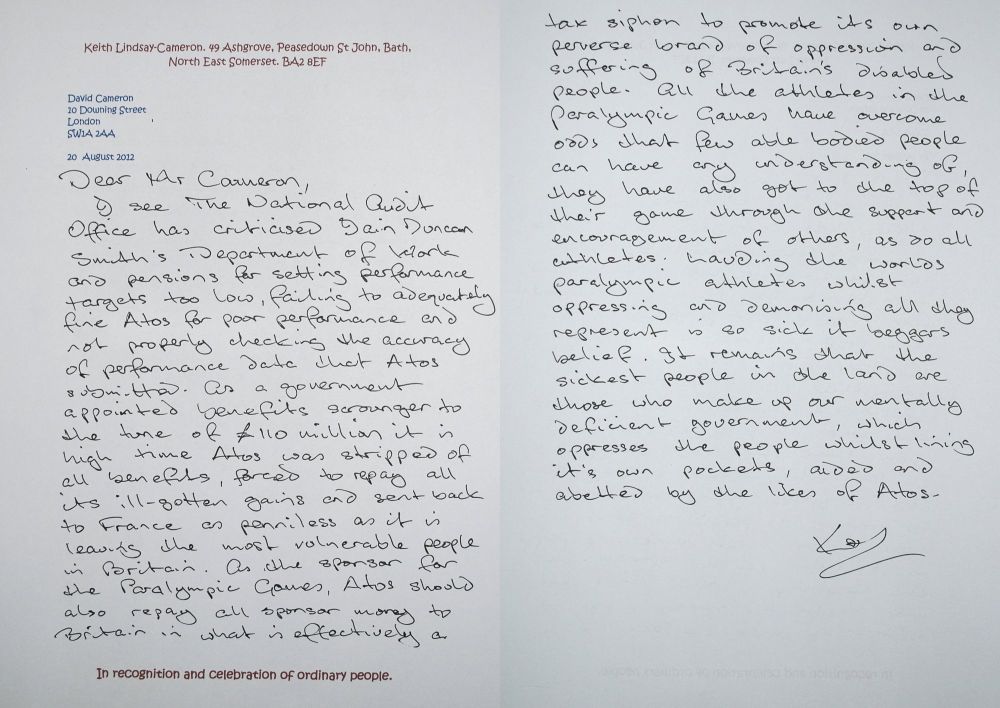 Keith Lindsay-Cameron. 49 Ashgrove, Peasedown St John, Bath,
North East Somerset. BA2 8EF
David Cameron
10 Downing Street
London
SW1A 2AA
20 August 2012
Dear Mr Cameron,
I see The National Audit
Office has criticised Iain Duncan
Smith's Department of Work
and pensions for setting performance
targets too low, failing to adequately
fine Atos for poor performance and
not properly checking the accuracy
of performance data that Atos
submitted. As a government
appointed benefits scrounger to
the tune of £110 million it is
high time Atos was stripped of
all benefits, forced to repay all
its ill-gotten gains and sent back
to France as penniless as it is
leaving the most vulnerable people
in Britain. As the sponsor for
the Paralympic Games, Atos should
also repay all sponsor money to
Britain in what is effectively a
In recognition and celebration of ordinary people.
tax siphon to promote its own
perverse brand of oppression and
suffering of Britain's disabled
people. All the athletes in the
Paralympic Games have overcome
odds that few able bodied people
can have any understanding of,
they have also got to the top of
their game through the support and
encouragement of others, as do all
athletes. Lauding the worlds
paralympic athletes whilst
oppressing and demonising all they
represent is so sick it beggars
belief. It remains that the
sickest people in the land are
those who make up our mentally
deficient government, which
oppresses the people whilst lining
it's own pockets, aided and
abetted by the likes of Atos.